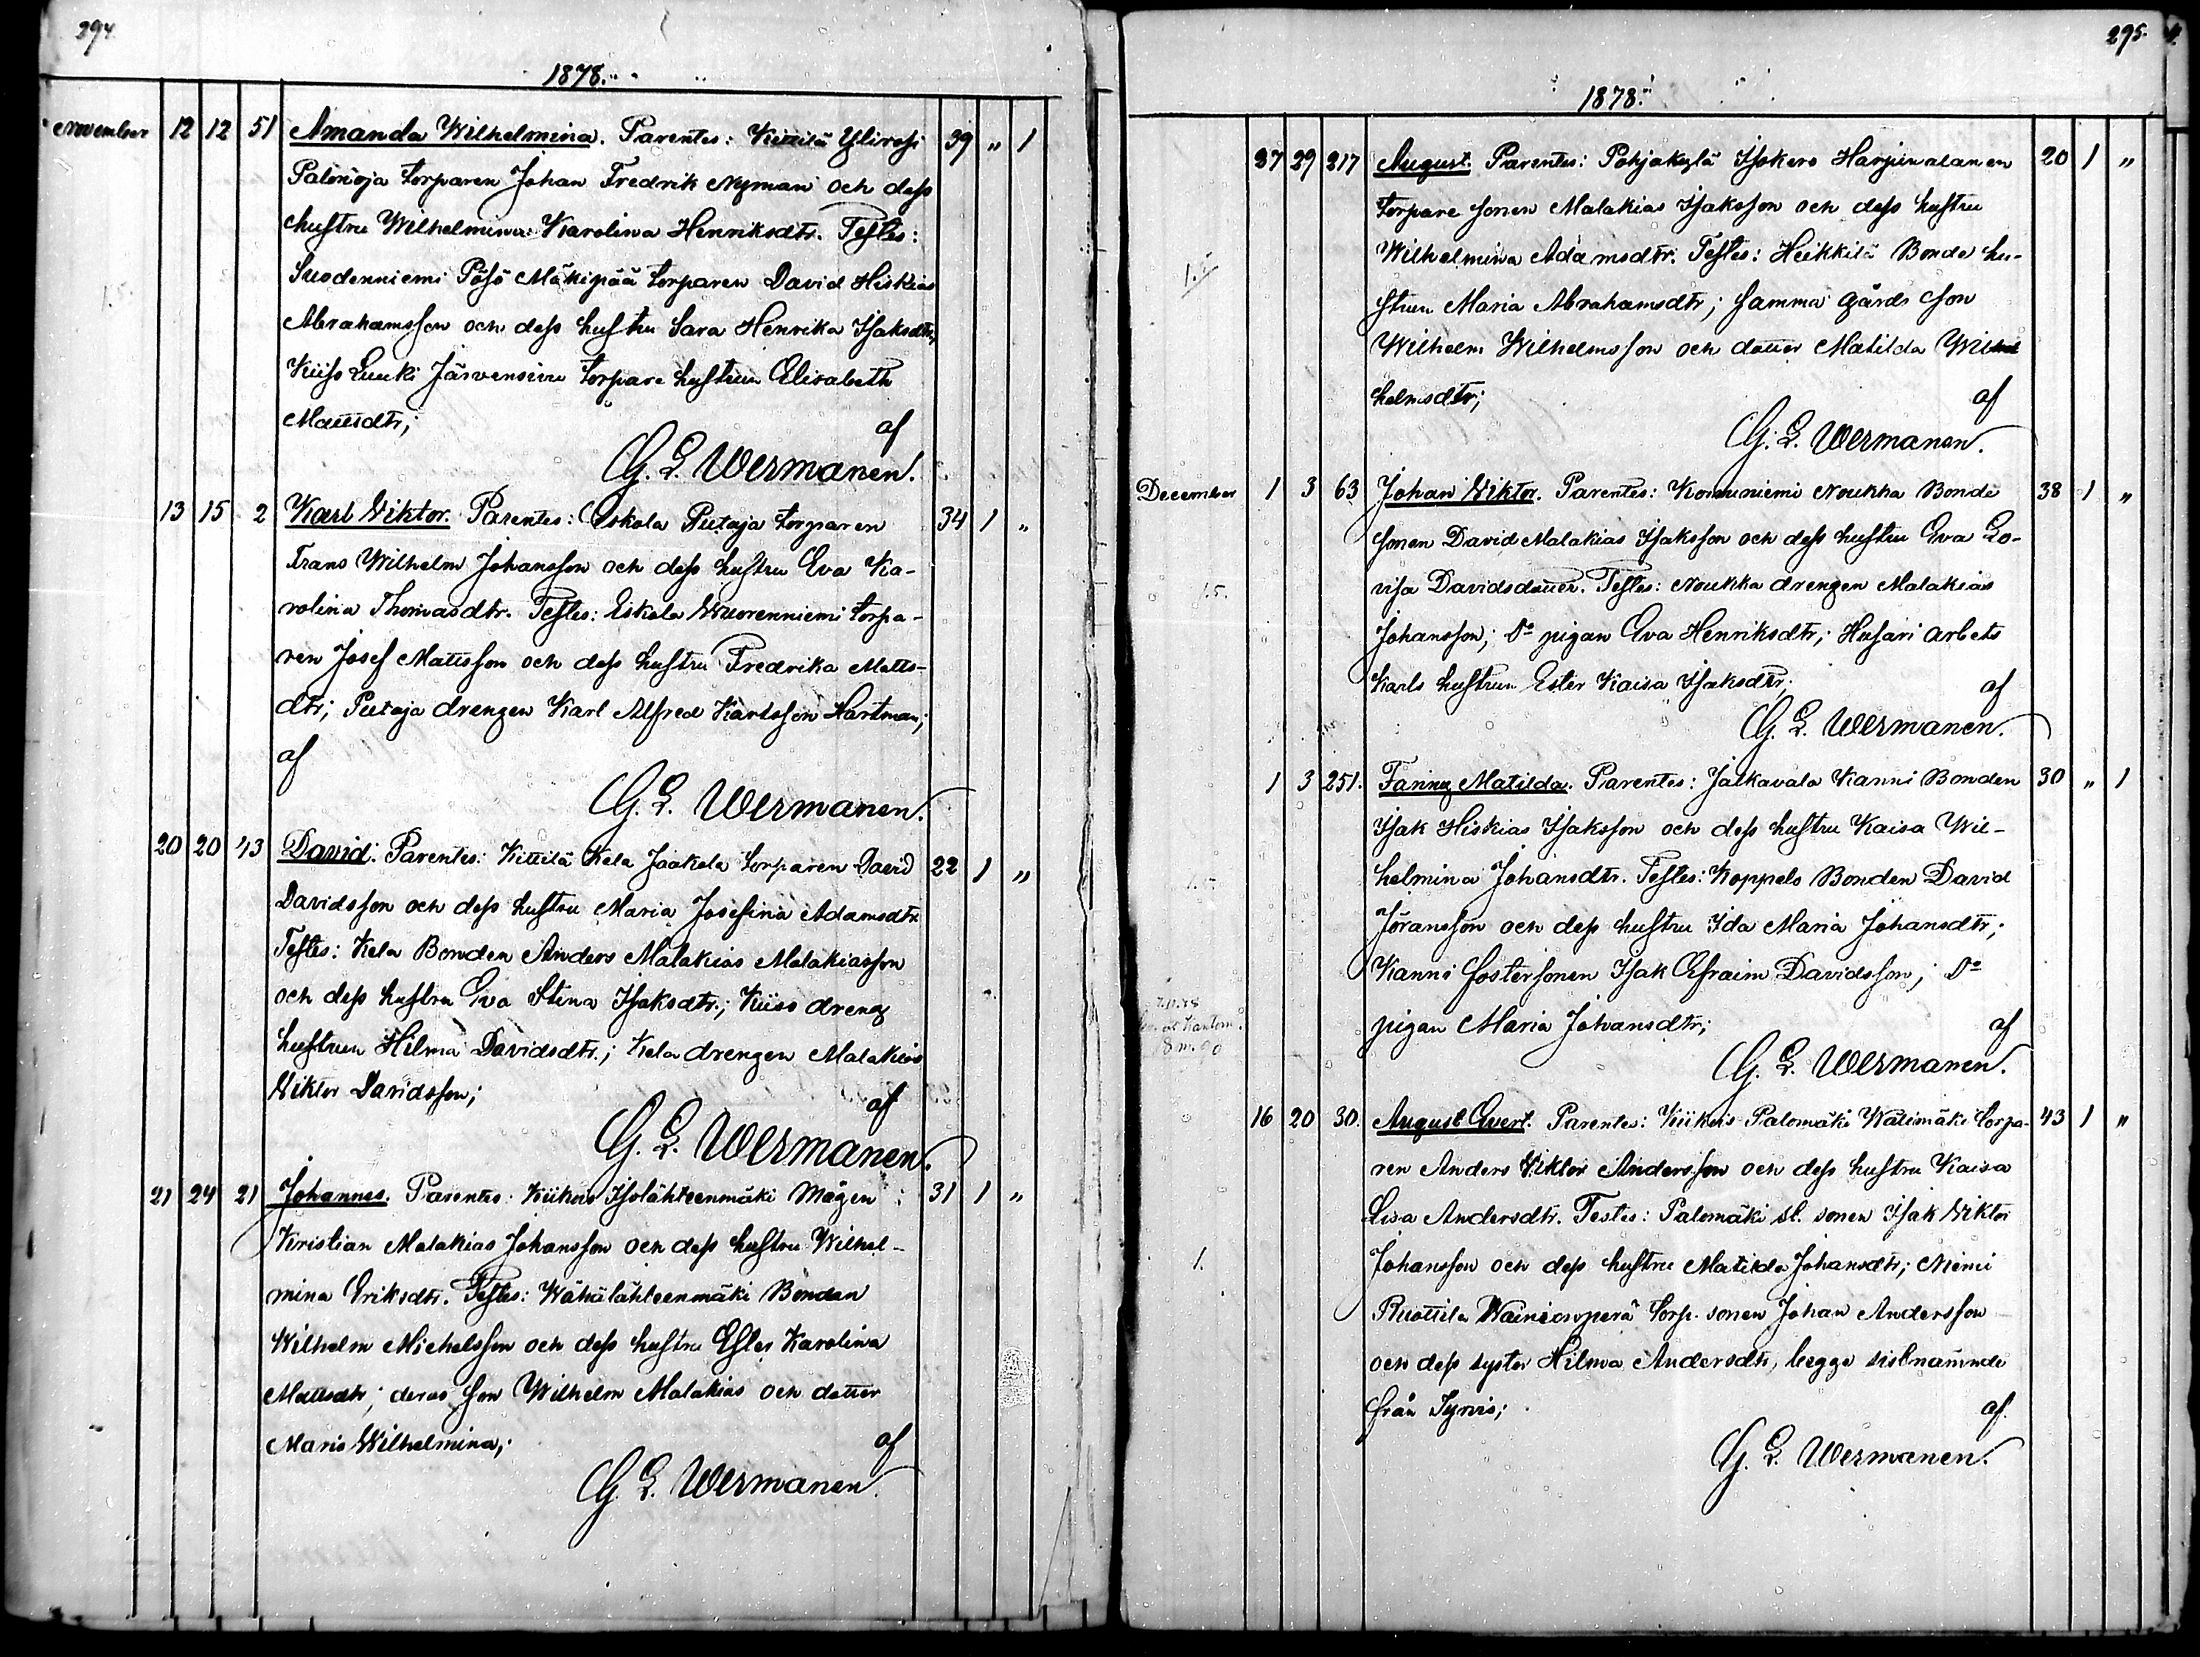 294.
1878.
November 12 12 51 Amanda Wilhelmina. Parentes: Kittilä Yliroſi 39 " 1
Palonoja torparen Johan Fredrik Nyman och deſs
huſtru Wilhelmina Karolina Henriksdtr. Teſtes:
Suodenniemi Pöſö Mäkipää torparen David Hiskias
Abrahamsſon och deſs huſtru Sara Henrika Iſaksdtr,
Kiiſs Luuki Järvensivu torpare huſtrun Elisabeth
Mattsdtr; af
G. L. Wermanen.
13 15 2 Karl Viktor. Parentes: Eskola Pietaja torparen 34 1 "
Frans Wilhelm Johansſon och deſs huſtru Eva Ka-
rolina Thomasdtr. Teſtes: Eskola Wuorenniemi torpa-
ren Josef Mattsſon och deſs huſtru Fredrika Matts-
dtr; Pietaja drengen Karl Alfred Karlsſon Hartman;
af
G. L. Wermanen.
20 20 43 David. Parentes: Kittilä Kela Jaakola torparen David 22 1 "
Davidsſon och deſs huſtru Maria Josefina Adamsdtr.
Teſtes: Kela Bonden Anders Malakias Malakiasſon
och deſs huſtru Eva Stina Iſaksdtr.; Kiiss dreng
huſtrun Hilma Davidsdtr.; Kela drengen Malakias
Viktor Davidsſon; af
G. L. Wermanen.
21 24 21 Johannes. Parentes: Kiikois Iſolähteenmäki Mågen 31 1 "
Kristian Malakias Johansſon och deſs huſtru Wilhel-
mina Eriksdtr. Teſtes: Wähälähteenmäki Bonden
Wilhelm Michelsſon och deſs huſtru Eſter Karolina
Mattsdtr; deras ſon Wilhelm Malakias och dotter
Maria Wilhelmina; af
G. L. Wermanen.
295.
1878.
27 29 217 August. Parentes: Pohjakylä Iſokero Harjunalanen 20 1 "
torpare ſonen Malakias Iſaksſon och deſs huſtru
Wilhelmina Adamsdtr. Teſtes: Heikkilä Bonde hu-
ſtrun Maria Abrahamsdtr; ſamma gårds ſon
Wilhelm Wilhelmsſon och dotter Matilda Wil-
helmsdtr; af
G. L. Wermanen.
December 1 3 63 Johan Viktor. Parentes: Kouruniemi Noukka Bonde 38 1 "
ſonen David Malakias Iſaksſon och deſs huſtru Eva Lo-
viſa Davidsdotter. Teſtes: Noukka drengen Malakias
Johansſon; Do pigan Eva Henriksdtr; Huſari arbets
Karls huſtrun Ester Kaisa Iſaksdtr; af
G. L. Wermanen.
1 3 251. Fanny Matilda. Parentes: Jalkavala Kanni Bonden 30 " 1
Iſak Hiskias Iſaksſon och deſs huſtru Kaisa Wil-
helmina Johansdtr. Teſtes: Koppelo Bonden David
Göransſon och deſs huſtru Ida Maria Johansdtr;
Kanni foſterſonen Iſak Efraim Davidsſon; Do
pigan Maria Johansdtr; af
G. L. Wermanen.
16 20 30. August Evert. Parentes: Kiikois Palomäki Walimäki torpa- 43 1 "
ren Anders Viktor Andersſon och deſs huſtru Kaisa
Lisa Andersdtr. Testes: Palomäki st. sonen Iſak Viktor
Johansſon och deſs huſtru Matilda Johansdtr; Niemi
Ruottila Wainionperä torp. sonen Johan Andersſon
och deſs syster Hilma Andersdtr, begge sistnämnde
från Tyrvis; af
G. L. Wermanen.